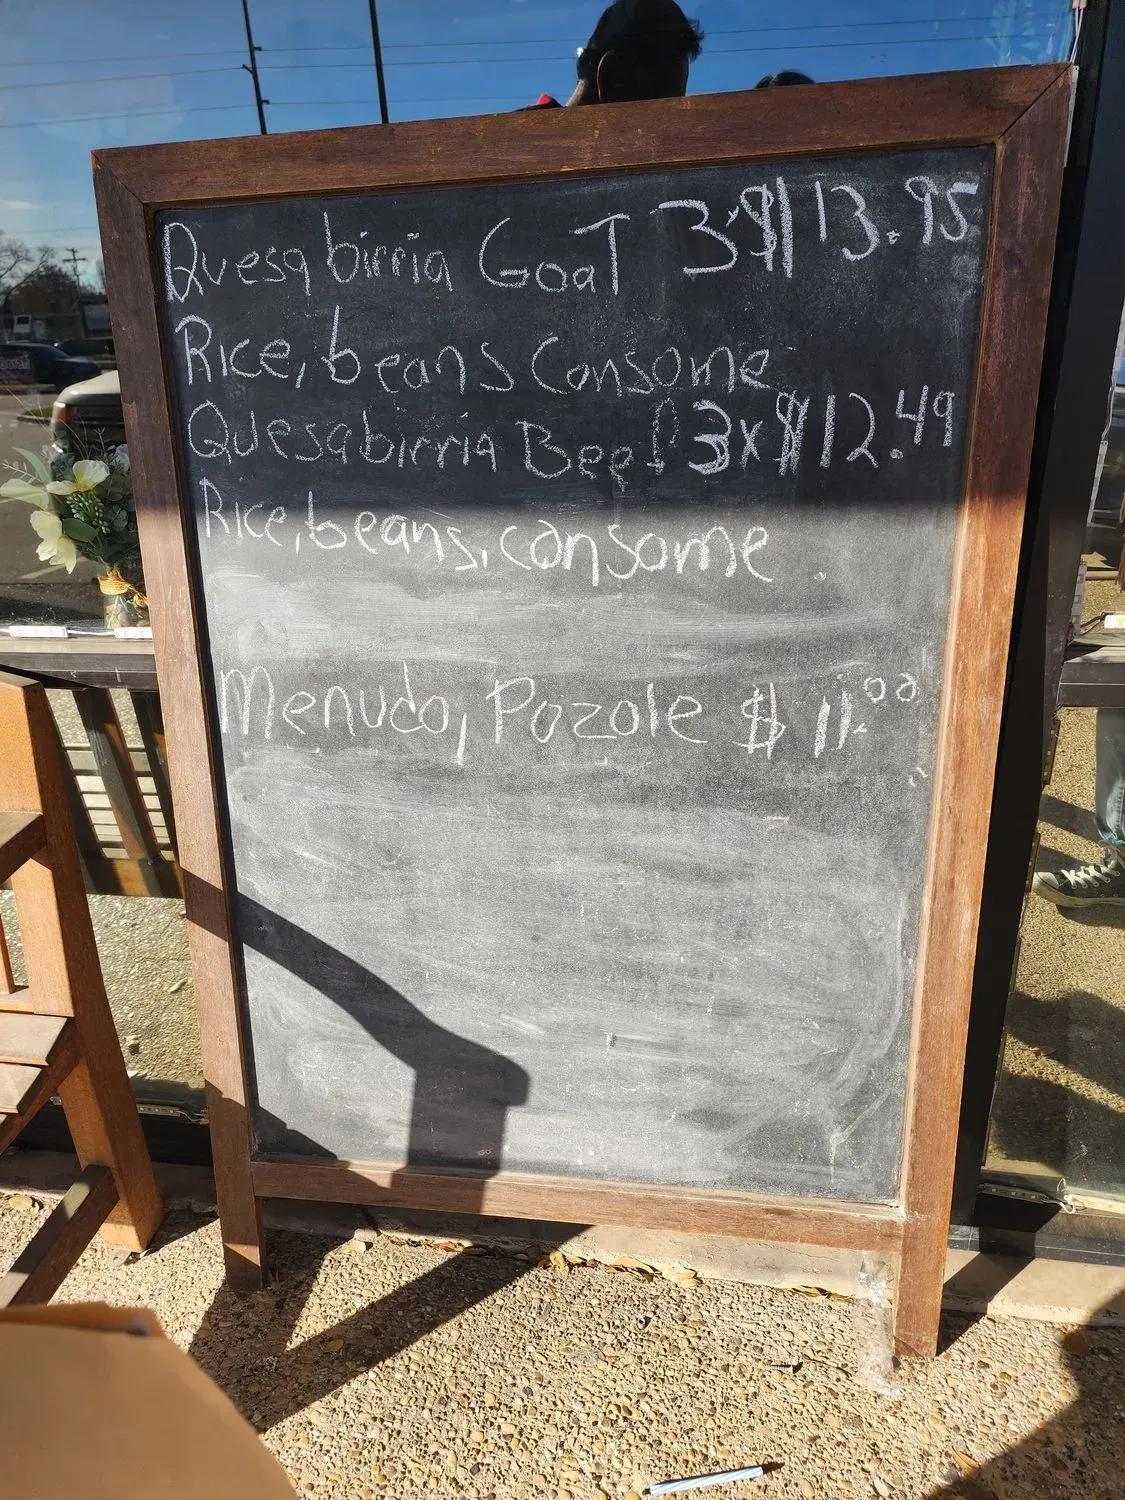 Quesabirria GoaT 3x$13.95
Rice, beans Consome
Quesabirria Beef 3x$12.49
Rice, beans, consome.
Menudo, Pozole $11.00